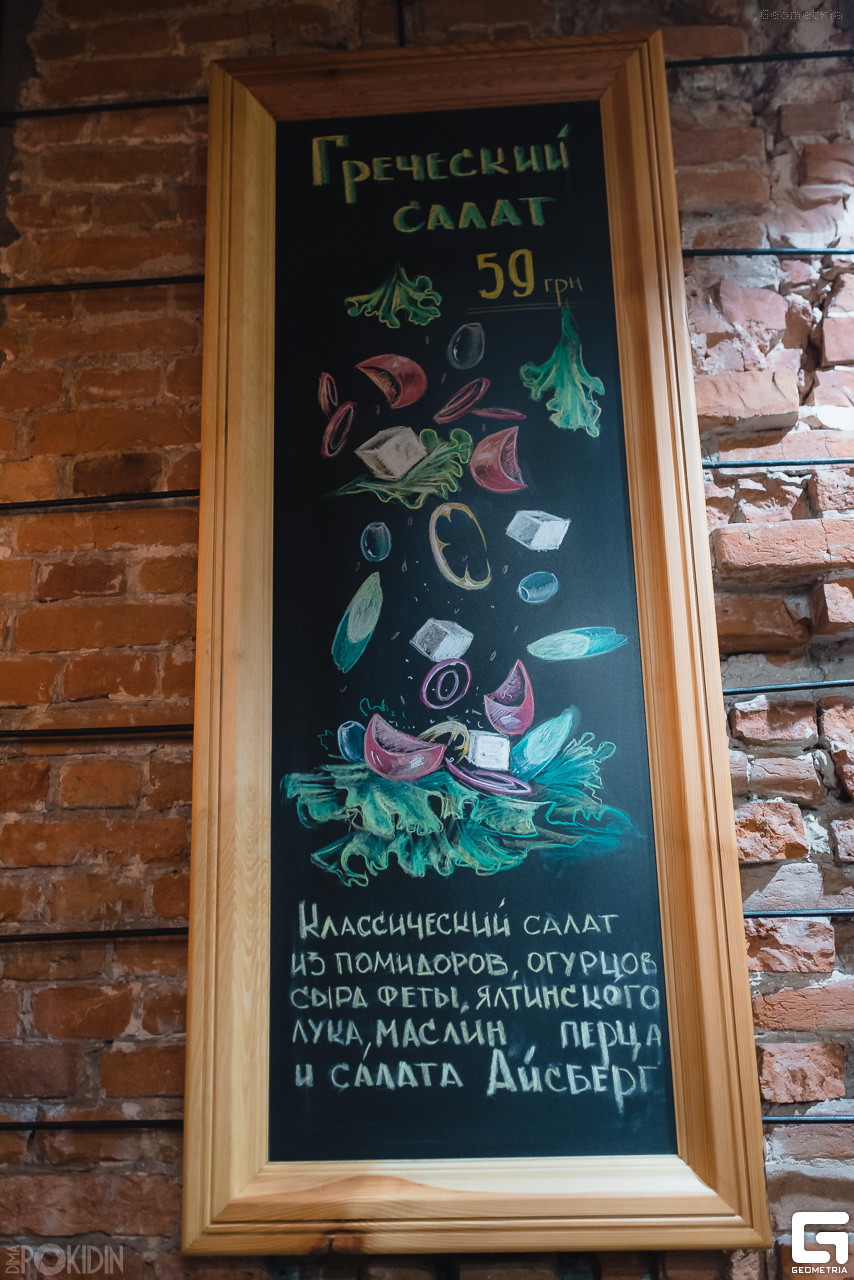 Geometria
Греческий
салат
59 грн
Классический салат
из помидоров, огурцов
сыра феты, ялтинского
лука, маслин перца
и салата Айсберг
DIMA POKIDIN
G
GEOMETRIA